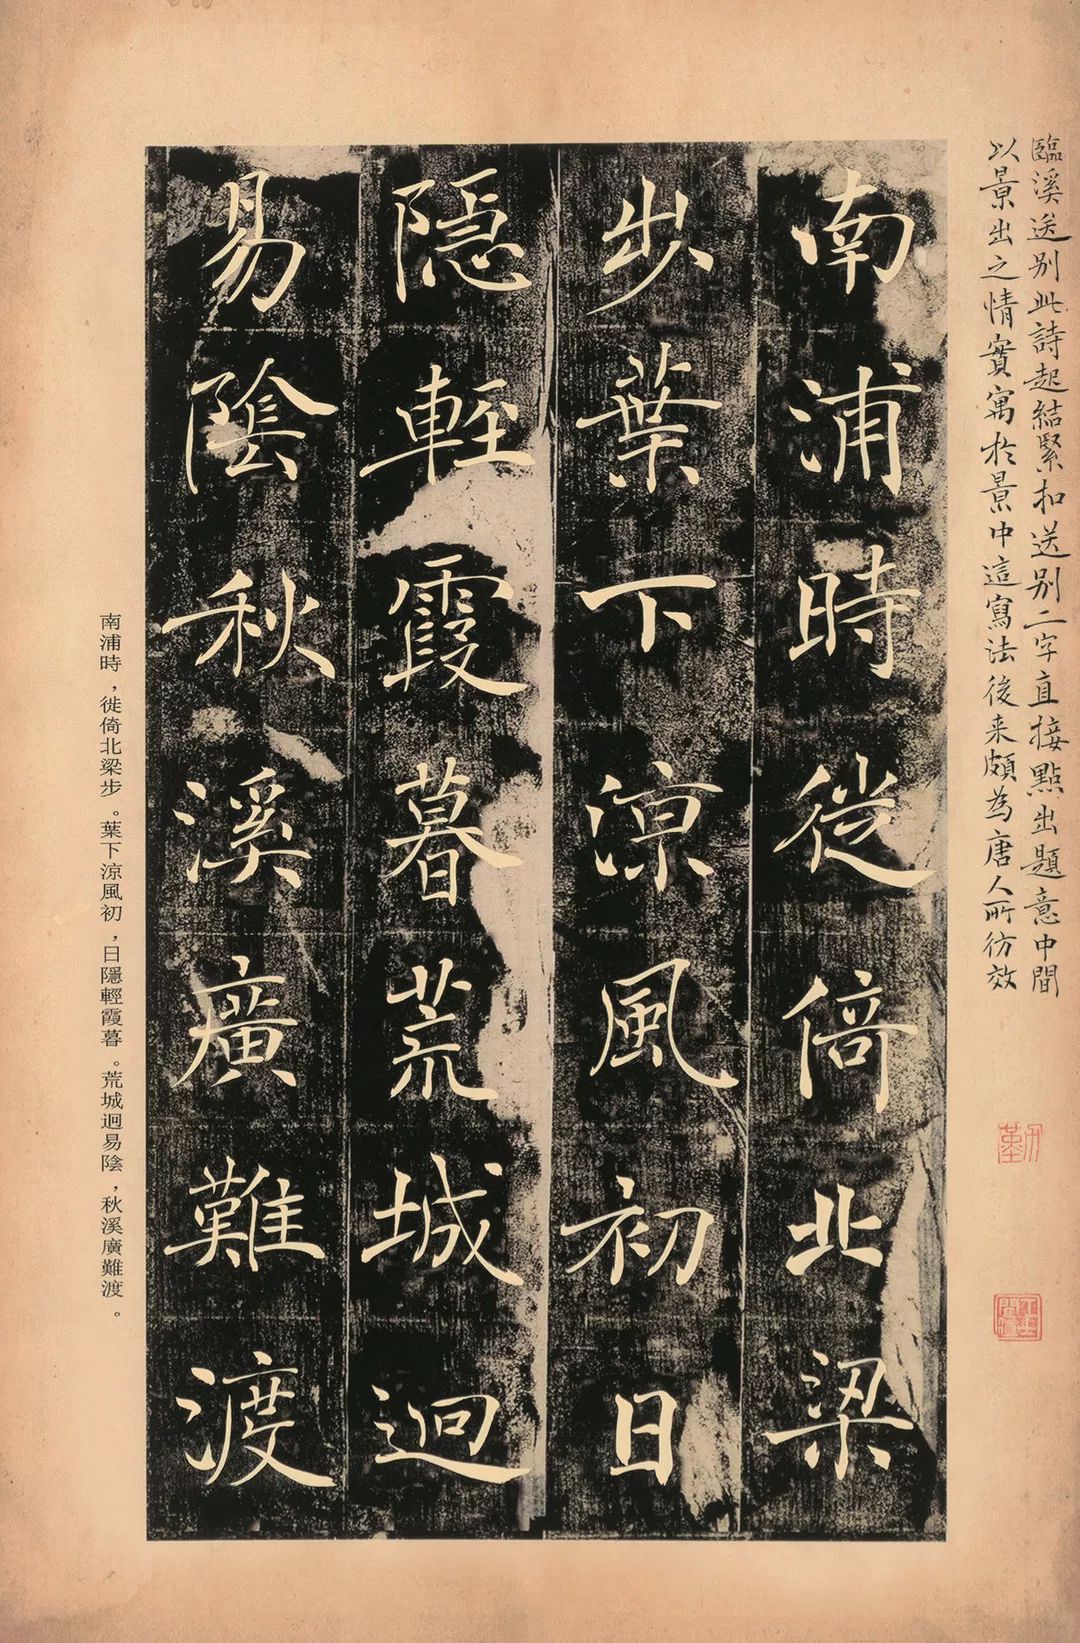 臨溪送別此詩起結緊扣送別二字直接點出題意中間
以景出之情實寓於景中這寫法後来頗為唐人所彷效
南浦時從倚北梁
步葉下涼風初日
隱輕霞暮荒城迥
易陰秋溪廣難渡
南浦時，徙倚北梁步。葉下涼風初，日隱輕霞暮。荒城迥易陰，秋溪廣難渡。